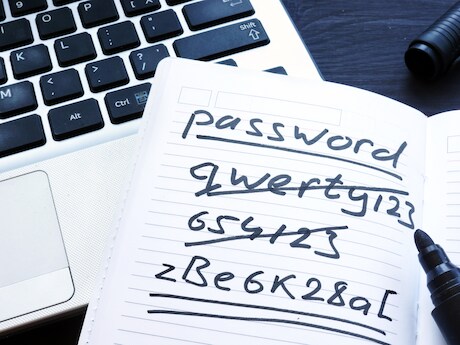 I O P { [
K L : ;
M < , > . ? / Shift
Alt Ctrl
password
qwerty123
654123
zBe6K28a[